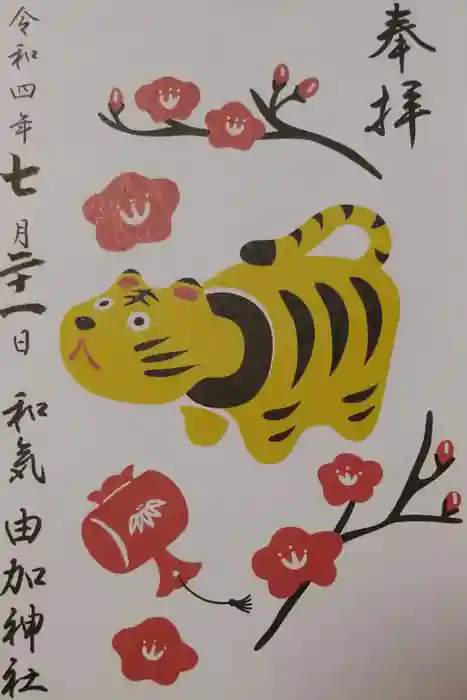 奉拝
令和四年七月二十一日 和気由加神社